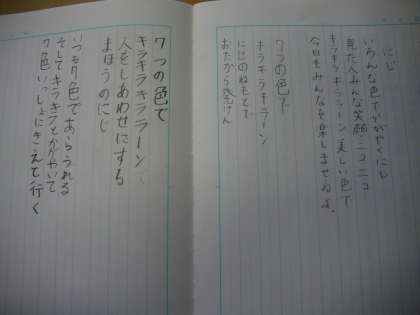 にじ
いろんな色でかがやくにじ
見た人みんな笑顔ニコニコ
キラキラキララーン美しい色で
今日もみんなを楽しませるよ。
7つの色で
キラキラキララーン
にじのねもとで
おたから発けん
7つの色で
キラキラキララーン
人をしあわせにする
まほうのにじ
いつも7色であらわれる
そしてキラキラとかがやいて
7色いっしょにきえて行く